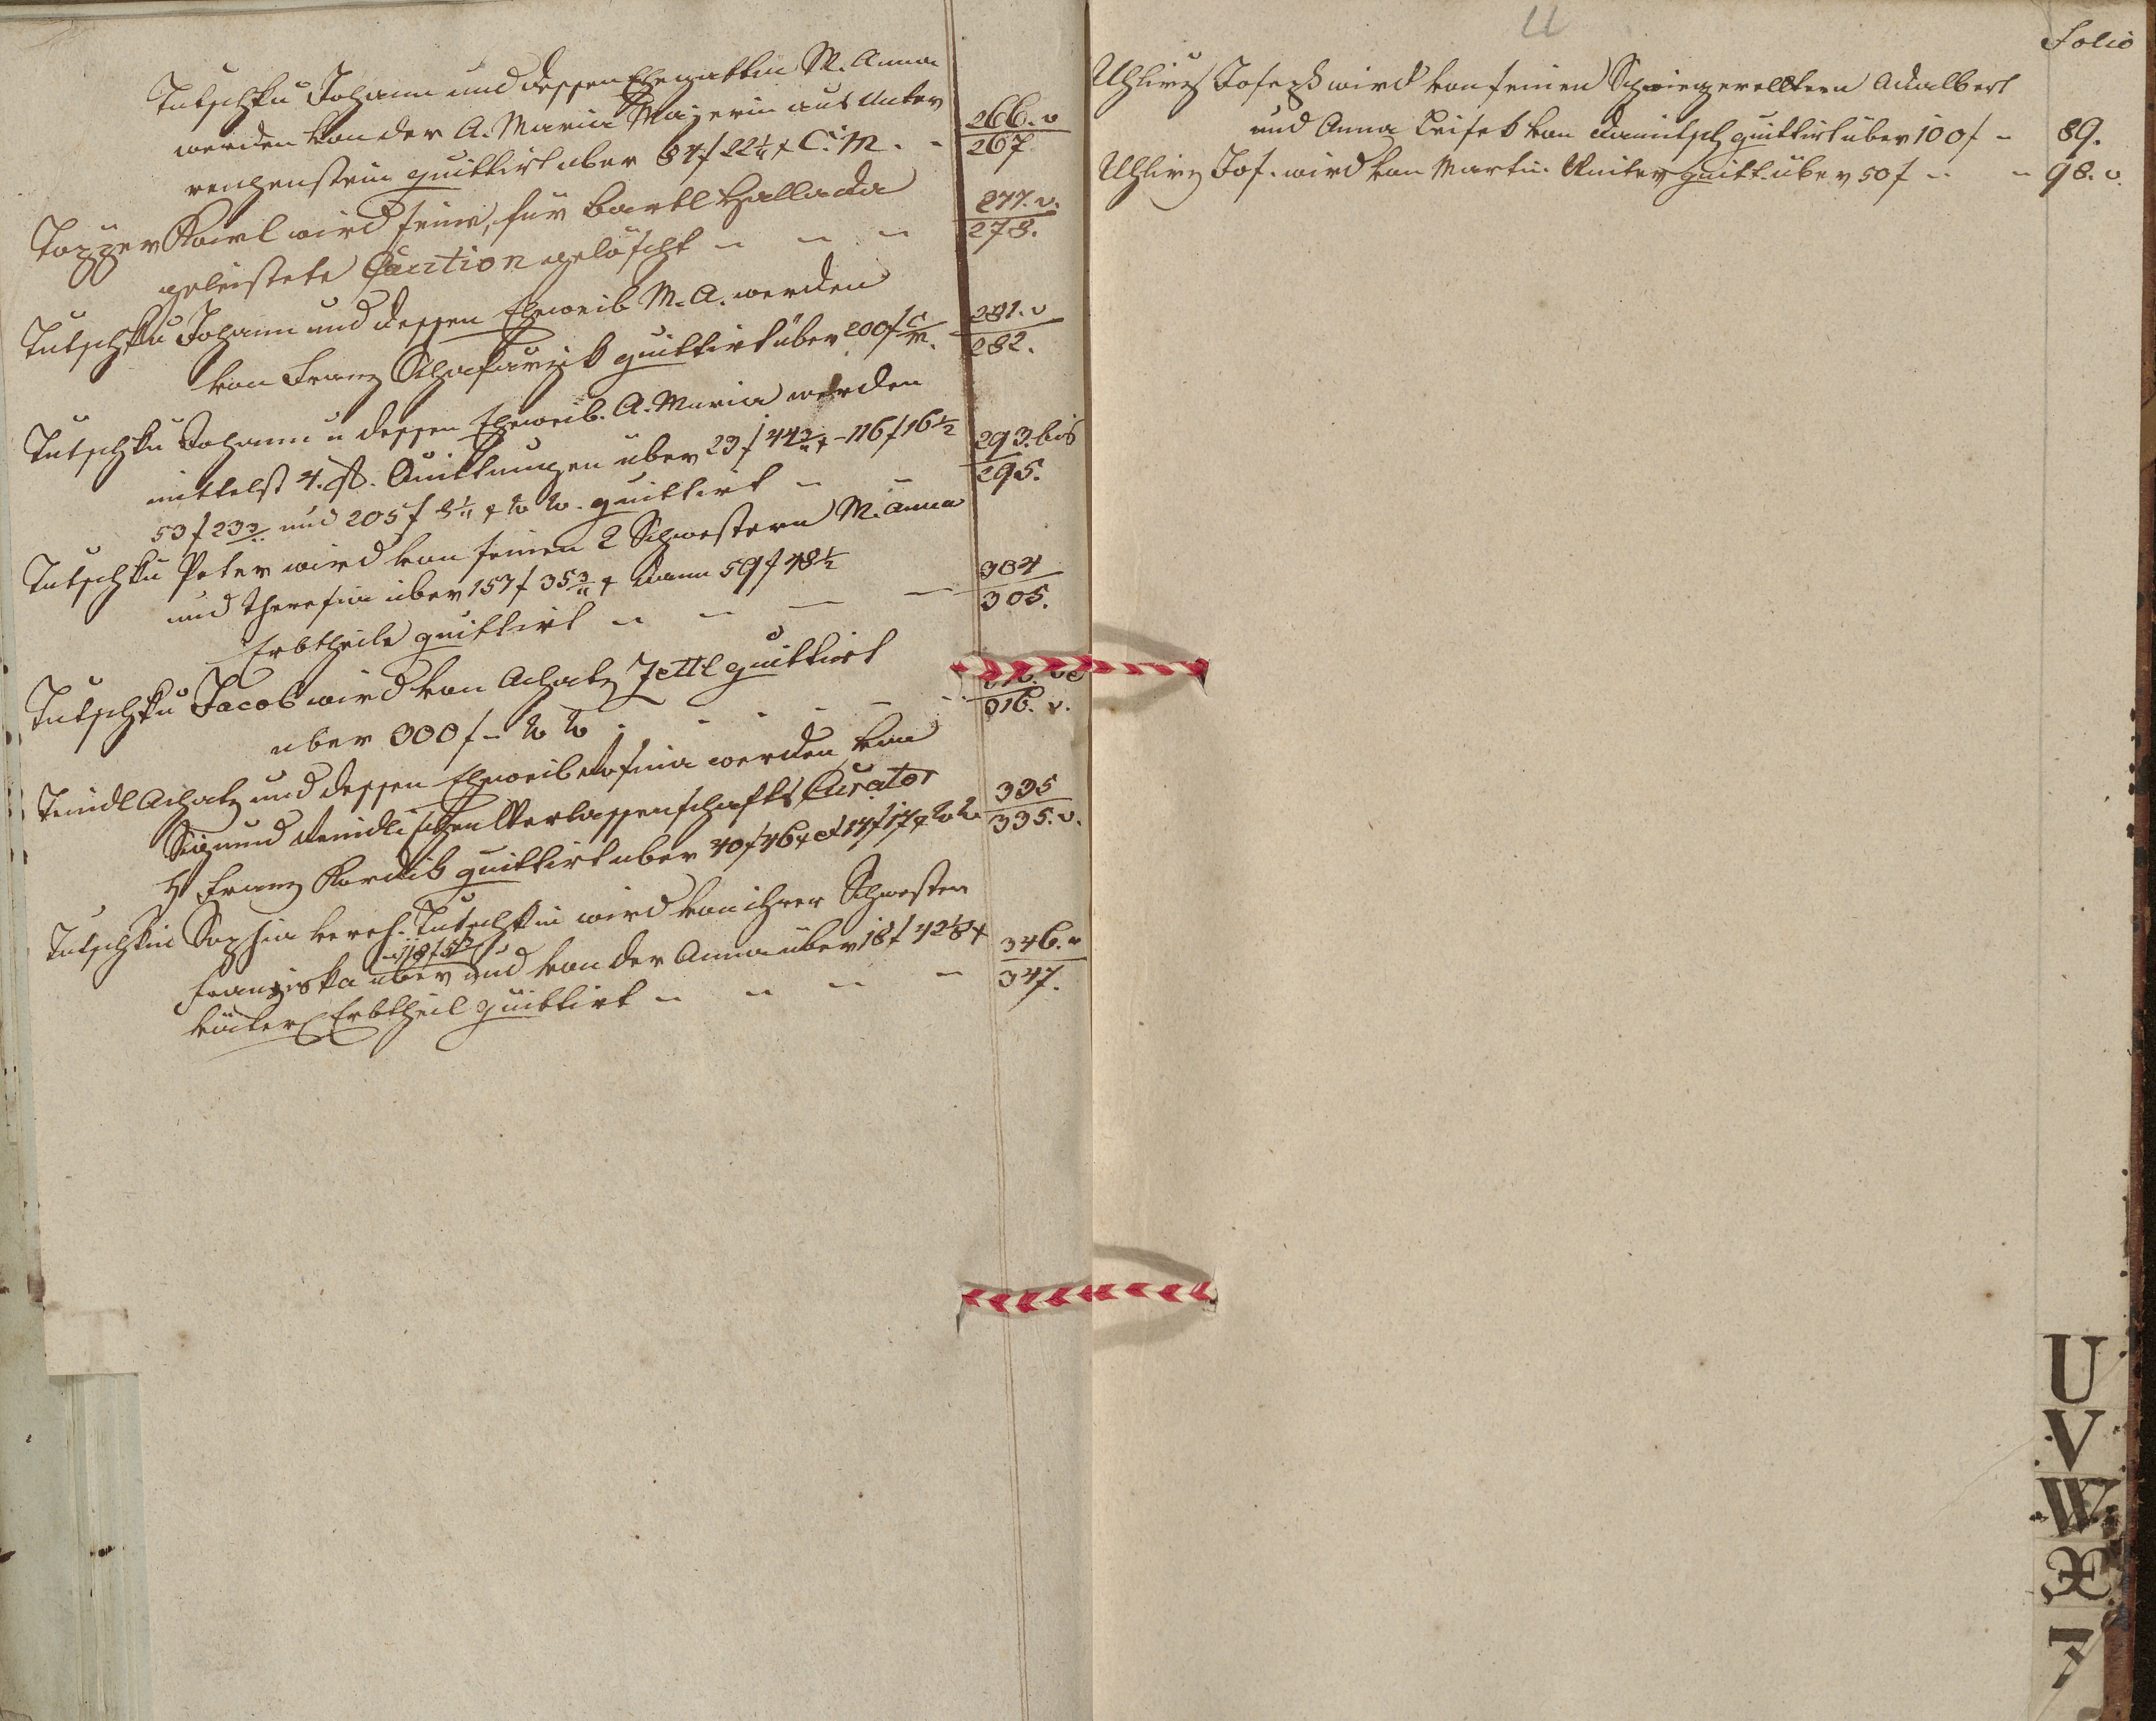 Tutschku Johann und dessen Ehegattin M. Anna
werden von der A. Maria Majerin aus Unter
reichenstein quittirt über 84 f 22¼ x C. M. - 266. v
267
Topper Karl wird seine, für Bartl Hallada
geleistete Caution gelöscht - - - 277. v.
278.
Tutschku Johann und dessen Eheweib M. A. werden
von Franz Schafarzik quittirt über 200 f C M. 281. v
282.
Tutschku Johann u dessen Eheweib. A. Maria werden
mittelst 4. St. Quittungen über 23 f 44¾ x - 116 f 16½
53 f 23¾ und 205 f 8¼ x W W. quittirt - - 293. bis
295.
Tutschku Peter wird von seinen 2 Schwestern M. Anna
und Theresia über 157 f 35¾ x dann 59 f 48½
Erbtheile quittirt - - - - 304
305.
Tutschku Jacob wird von Achatz Zettl quittirt
über 300 f - W W. - - - - -
316. v.
Achatz und dessen Eheweib Rosina werden vom
Sigmund Verlassenschafts Curator
H Franz Kordik quittirt über 40 f 46 x et 14 f 17 x W W. 335
335. v.
Tutschkin Sophia vereh. Tutschkin wird von ihrer Schwester
Franziska über und von der Anna über 18 f 42⅛ x
väterl Erbtheil quittirt - - - - 346. v
347.
U
Folio
Uhlirz Joseph wird von seinen Schwiegerelltern Adalbert
und Anna von quittirt über 100 f - 89.
Uhlirz Jos. wird von Martin Reiter quitt. über 50 f - - 98. v.
U
V
W
X
Z